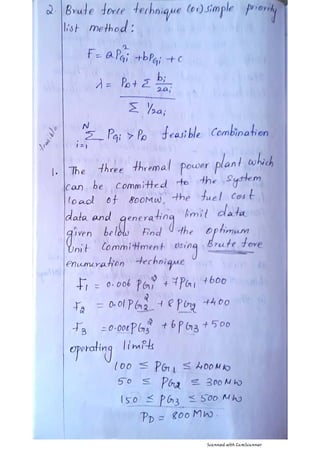 2 Brute force technique (or) simple priority
list method:
F = aPGi² + bPGi + c
λ = PD + Σ bi/2ai
Σ 1/2ai
N
Σ PGi > PD feasible Combination
i=1
1. The three thremal power plant which
can be committed to the system
load of 800MW, the fuel cost
data and generating limit data
given below Find the optimum
Unit Committment using Brute fore
enumuration technique
F1 = 0.006 PG1² + 7PG1 + 600
F2 = 0.01PG2² + 8PG2 + 400
F3 = 0.008PG3² + 6PG3 + 500
operating limits
100 ≤ PG1 ≤ 400MW
50 ≤ PG2 ≤ 300MW
150 ≤ PG3 ≤ 500 MW
PD = 800MW.
Scanned with CamScanner